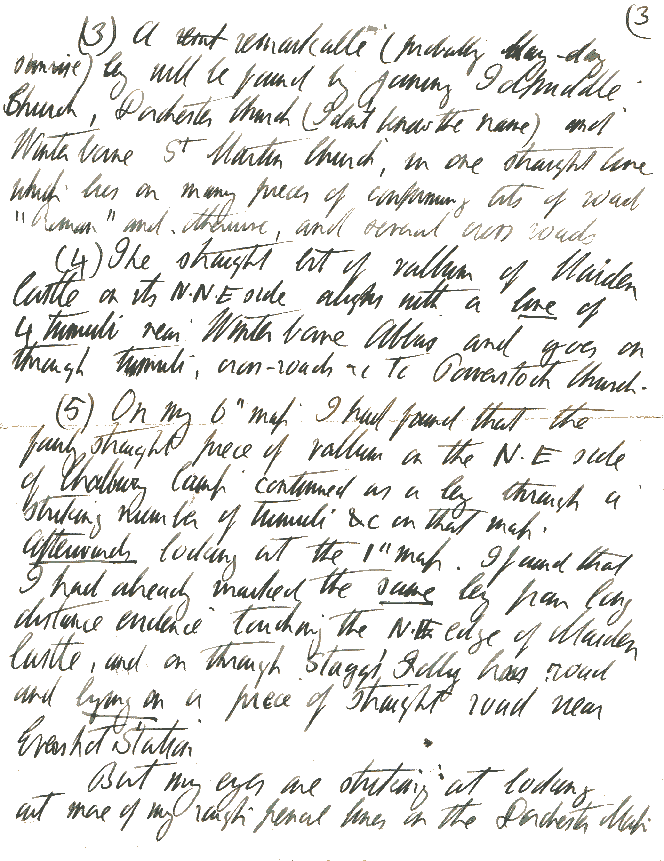 (3
(3) A remarkable (probably May-day
sunrise) ley will be found by joining Affpuddle
Church, Dorchester Church (I don't know the name) and
Winterborne St Martin Church, in one straight line
which lies on many pieces of confirming bits of road
"Roman" and otherwise, and several cross roads
(4) The straight bit of vallum of Maiden
Castle on its N.N.E side aligns with a line of
4 tumuli near Winterborne Abbas and goes on
through tumuli, cross-roads &c to Powerstock Church.
(5) On my 6" map I had found that the
fairly straight piece of vallum on the N.E side
of Chalbury Camp continued as a ley through a
striking number of tumuli &c on that map.
Afterwards looking at the 1" map. I found that
I had already marked the same ley from long
distance evidence touching the N.E edge of Maiden
Castle, and on through Staggs Folly cross road
and lying on a piece of straight road near
Evershot Station
But my eyes are striking at looking
out more of my rough pencil lines on the Dorchester Map